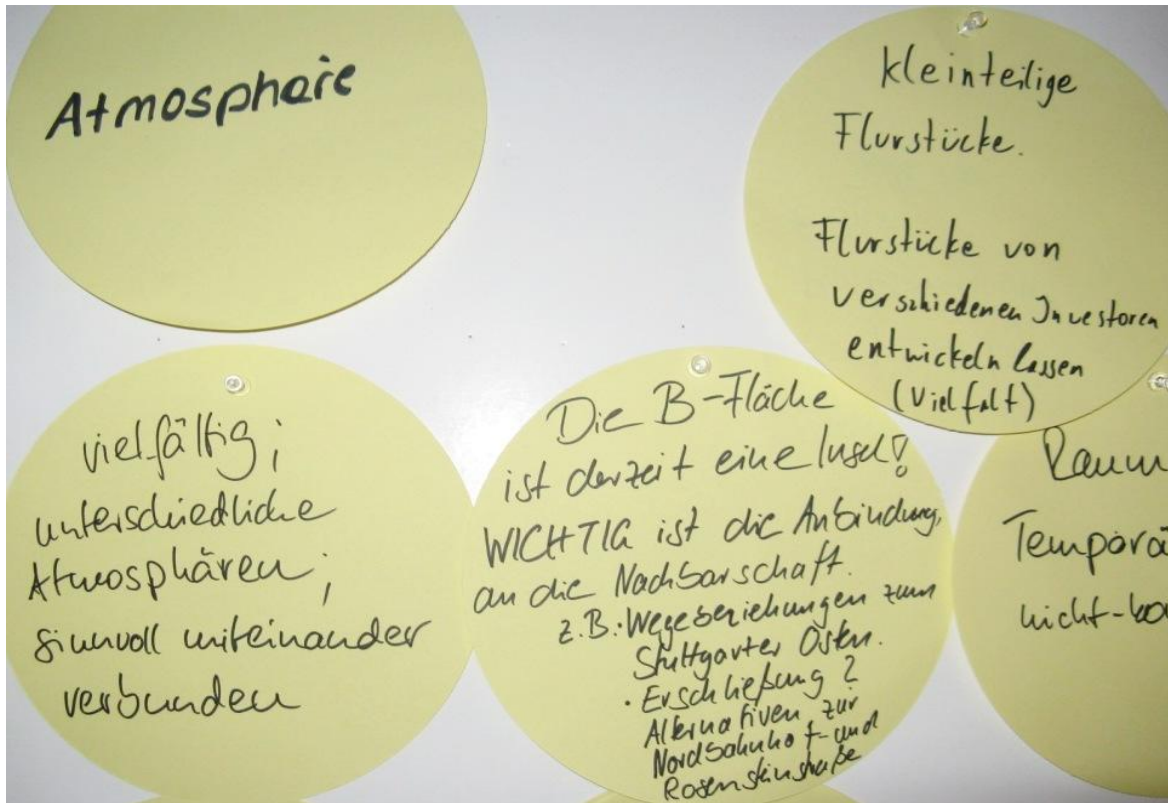 Atmosphäre
kleinteilige
Flurstücke.
Flurstücke von
verschiedenen Investoren
entwickeln lassen
(Vielfalt)
vielfältig;
unterschiedliche
Atmosphären;
sinnvoll miteinander
verbunden
Die B-Fläche
ist derzeit eine Insel!
WICHTIG ist die Anbindung,
an die Nachbarschaft.
z.B. · Wegebeziehungen zum
Stuttgarter Osten.
· Erschließung?
Alternativen zur
Nordbahnhof- und
Rosensteinstraße
Raum
Temporä
nicht-ko